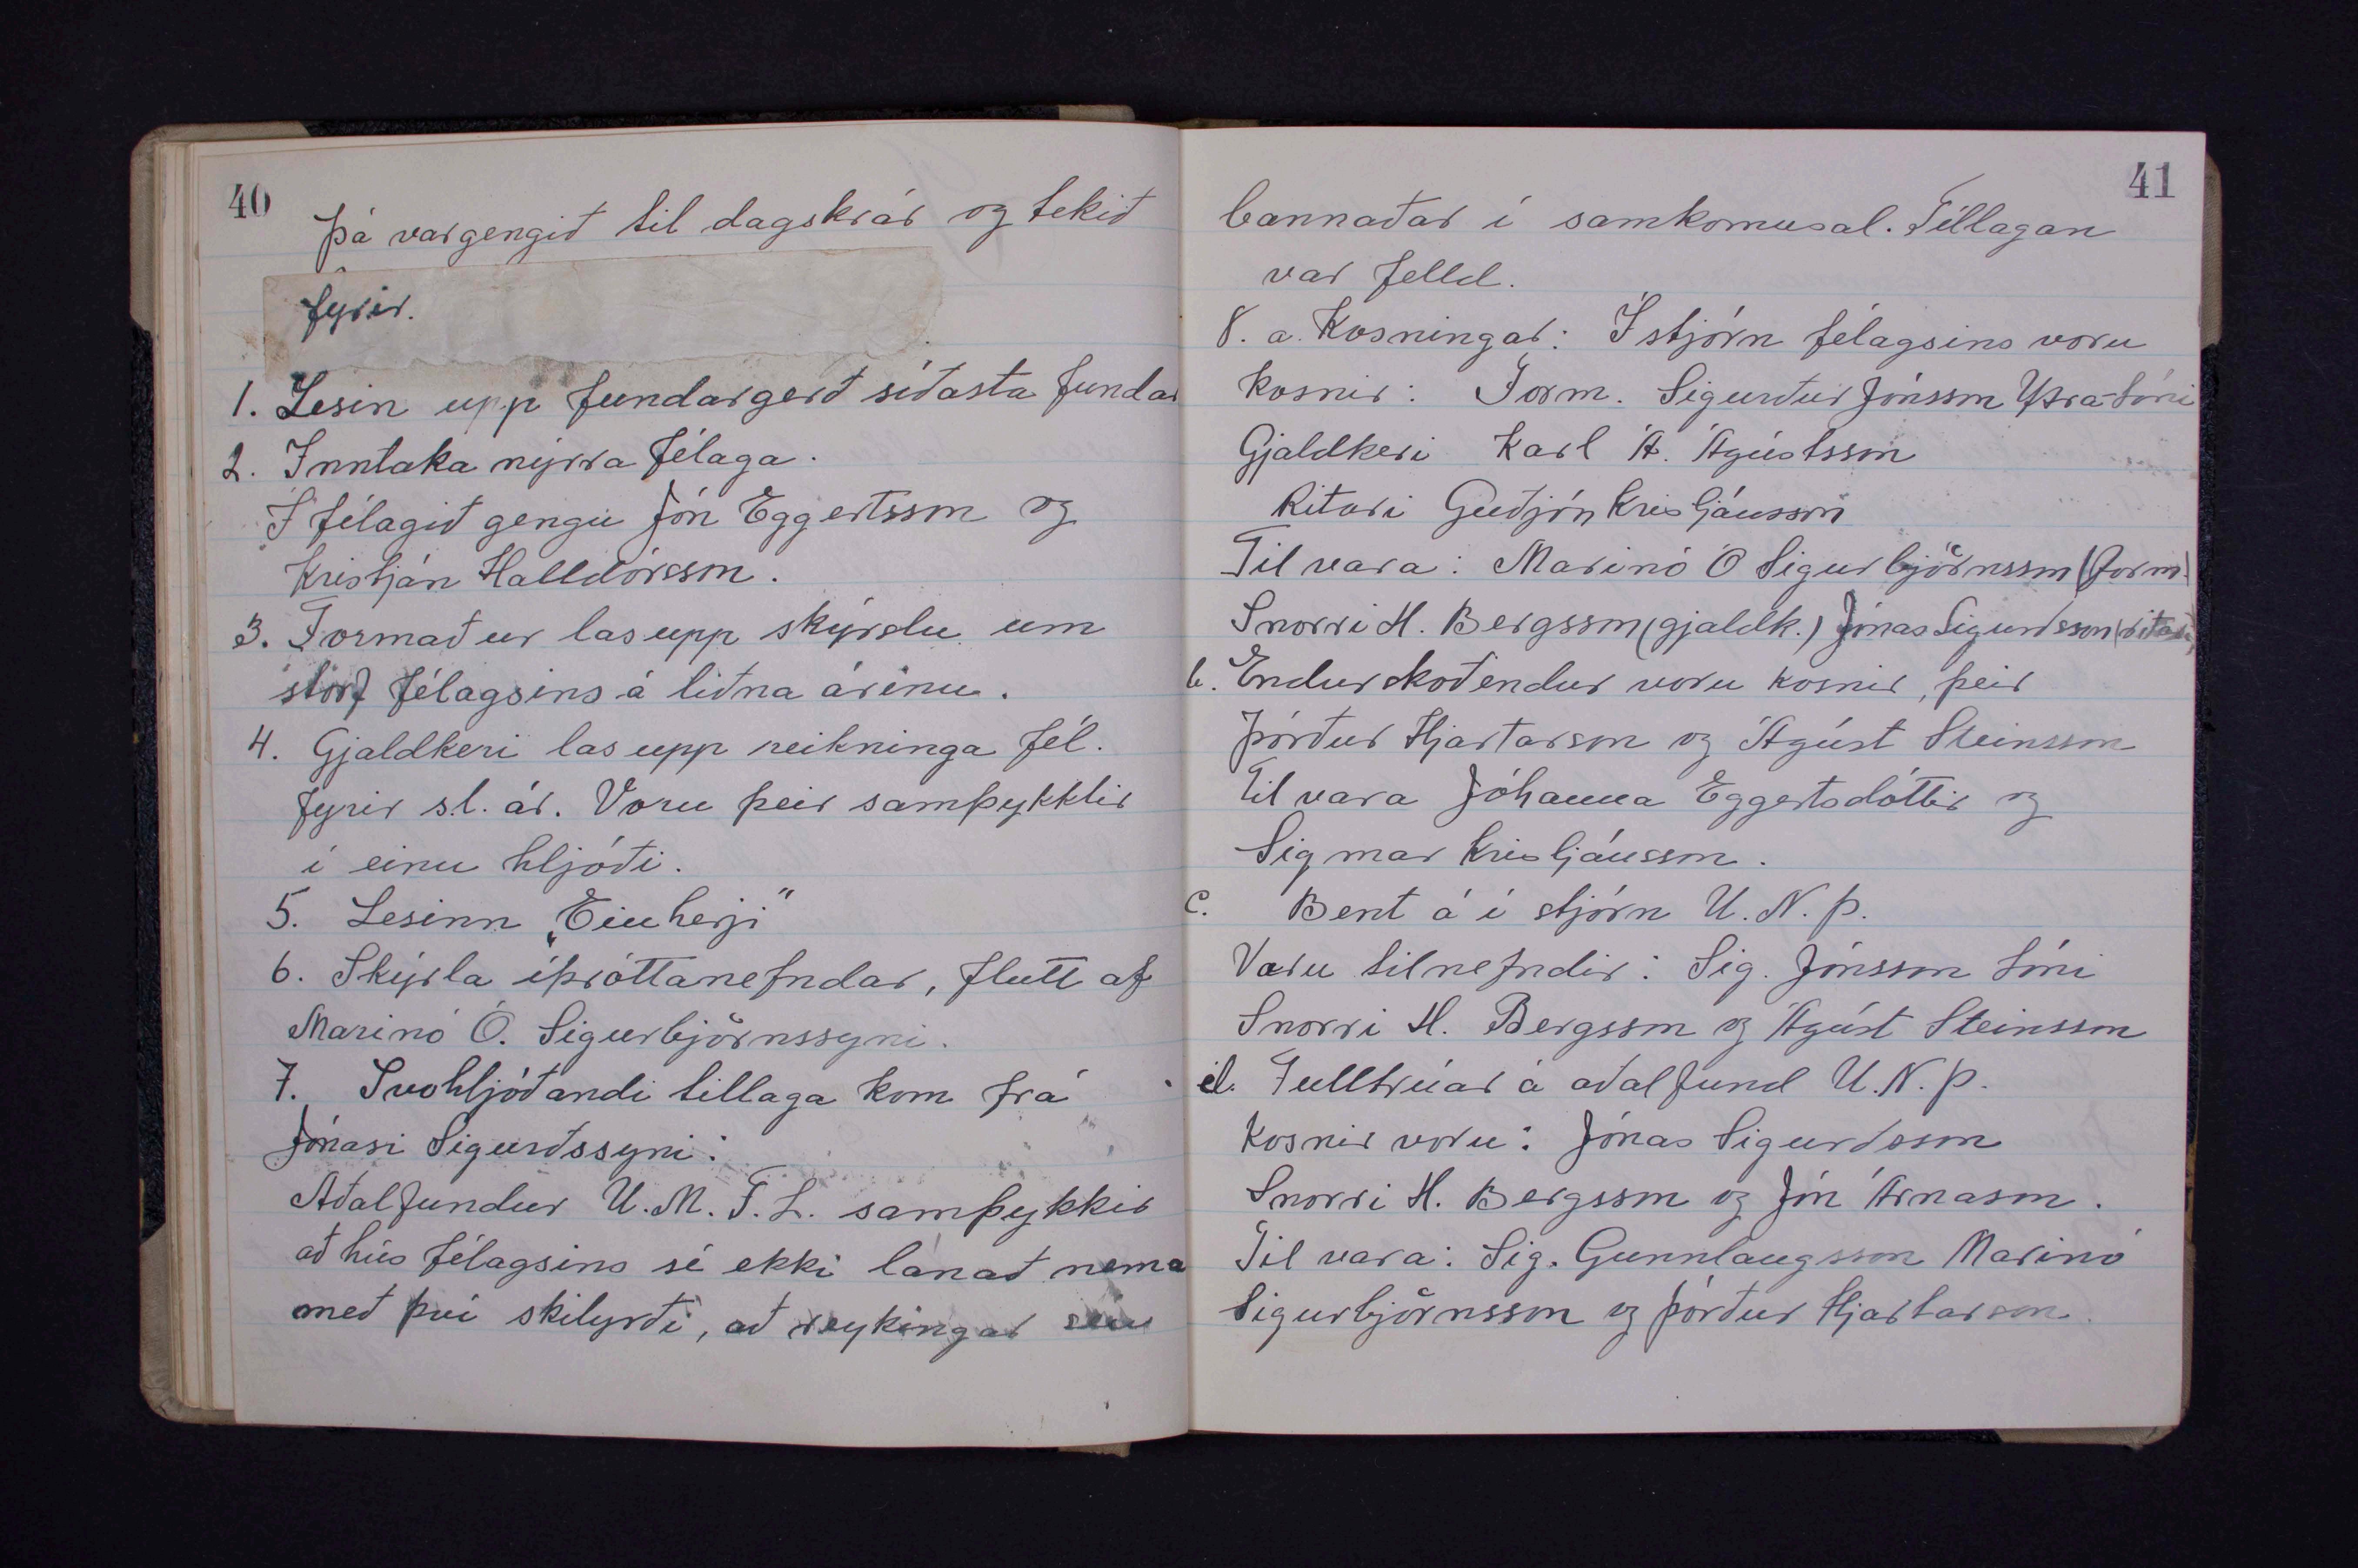 40
Þá var gengið til dagskrár og tekið
fyrir.
1. Lesin upp fundargerð síðasta fundar
2. Inntaka nýrra félaga.
Í félagið gengu Jón Eggertsson og
Kristján Halldórsson.
3. Formaður las upp skýrslu um
störf félagsins á liðna árinu.
4. Gjaldkeri las upp reikninga fél.
fyrir s.l. ár. Voru þeir samþykktir
í einu hljóði.
5. Lesinn „Einherji“
6. Skýrsla íþróttanefndar, flutt af
Marinó Ó. Sigurbjörnssyni.
7. Svohljóðandi tillaga kom frá
Jónasi Sigurðssyni:
Aðalfundur U.M.F.L. samþykkir
að hús félagsins sé ekki lánað nema
með því skilyrði, að reykingar séu
41
bannaðar í samkomusal. Tillagan
var felld.
8. a. Kosningar: Í stjórn félagsins voru
kosnir: Form. Sigurður Jónsson Ytra-Lóni
Gjaldkeri Karl Á. Ágústsson
Ritari Guðjón Kristjánsson
Til vara: Marinó Ó Sigurbjörnsson (form.)
Snorri H. Bergsson (gjaldk.) Jónas Sigurðsson (ritari)
b. Endurskoðendur voru kosnir, þeir
Þórður Hjartarson og Ágúst Steinsson
Til vara Jóhanna Eggertsdóttir og
Sigmar Kristjánsson.
c. Bent á í stjórn U.N.Þ.
Voru tilnefndir: Sig. Jónsson Lóni
Snorri H. Bergsson og Ágúst Steinsson
d. Fulltrúar á aðalfund U.N.Þ.
Kosnir voru: Jónas Sigurðsson
Snorri H. Bergsson og Jón Árnason.
Til vara: Sig. Gunnlaugsson Marinó
Sigurbjörnsson og Þórður Hjartarson.